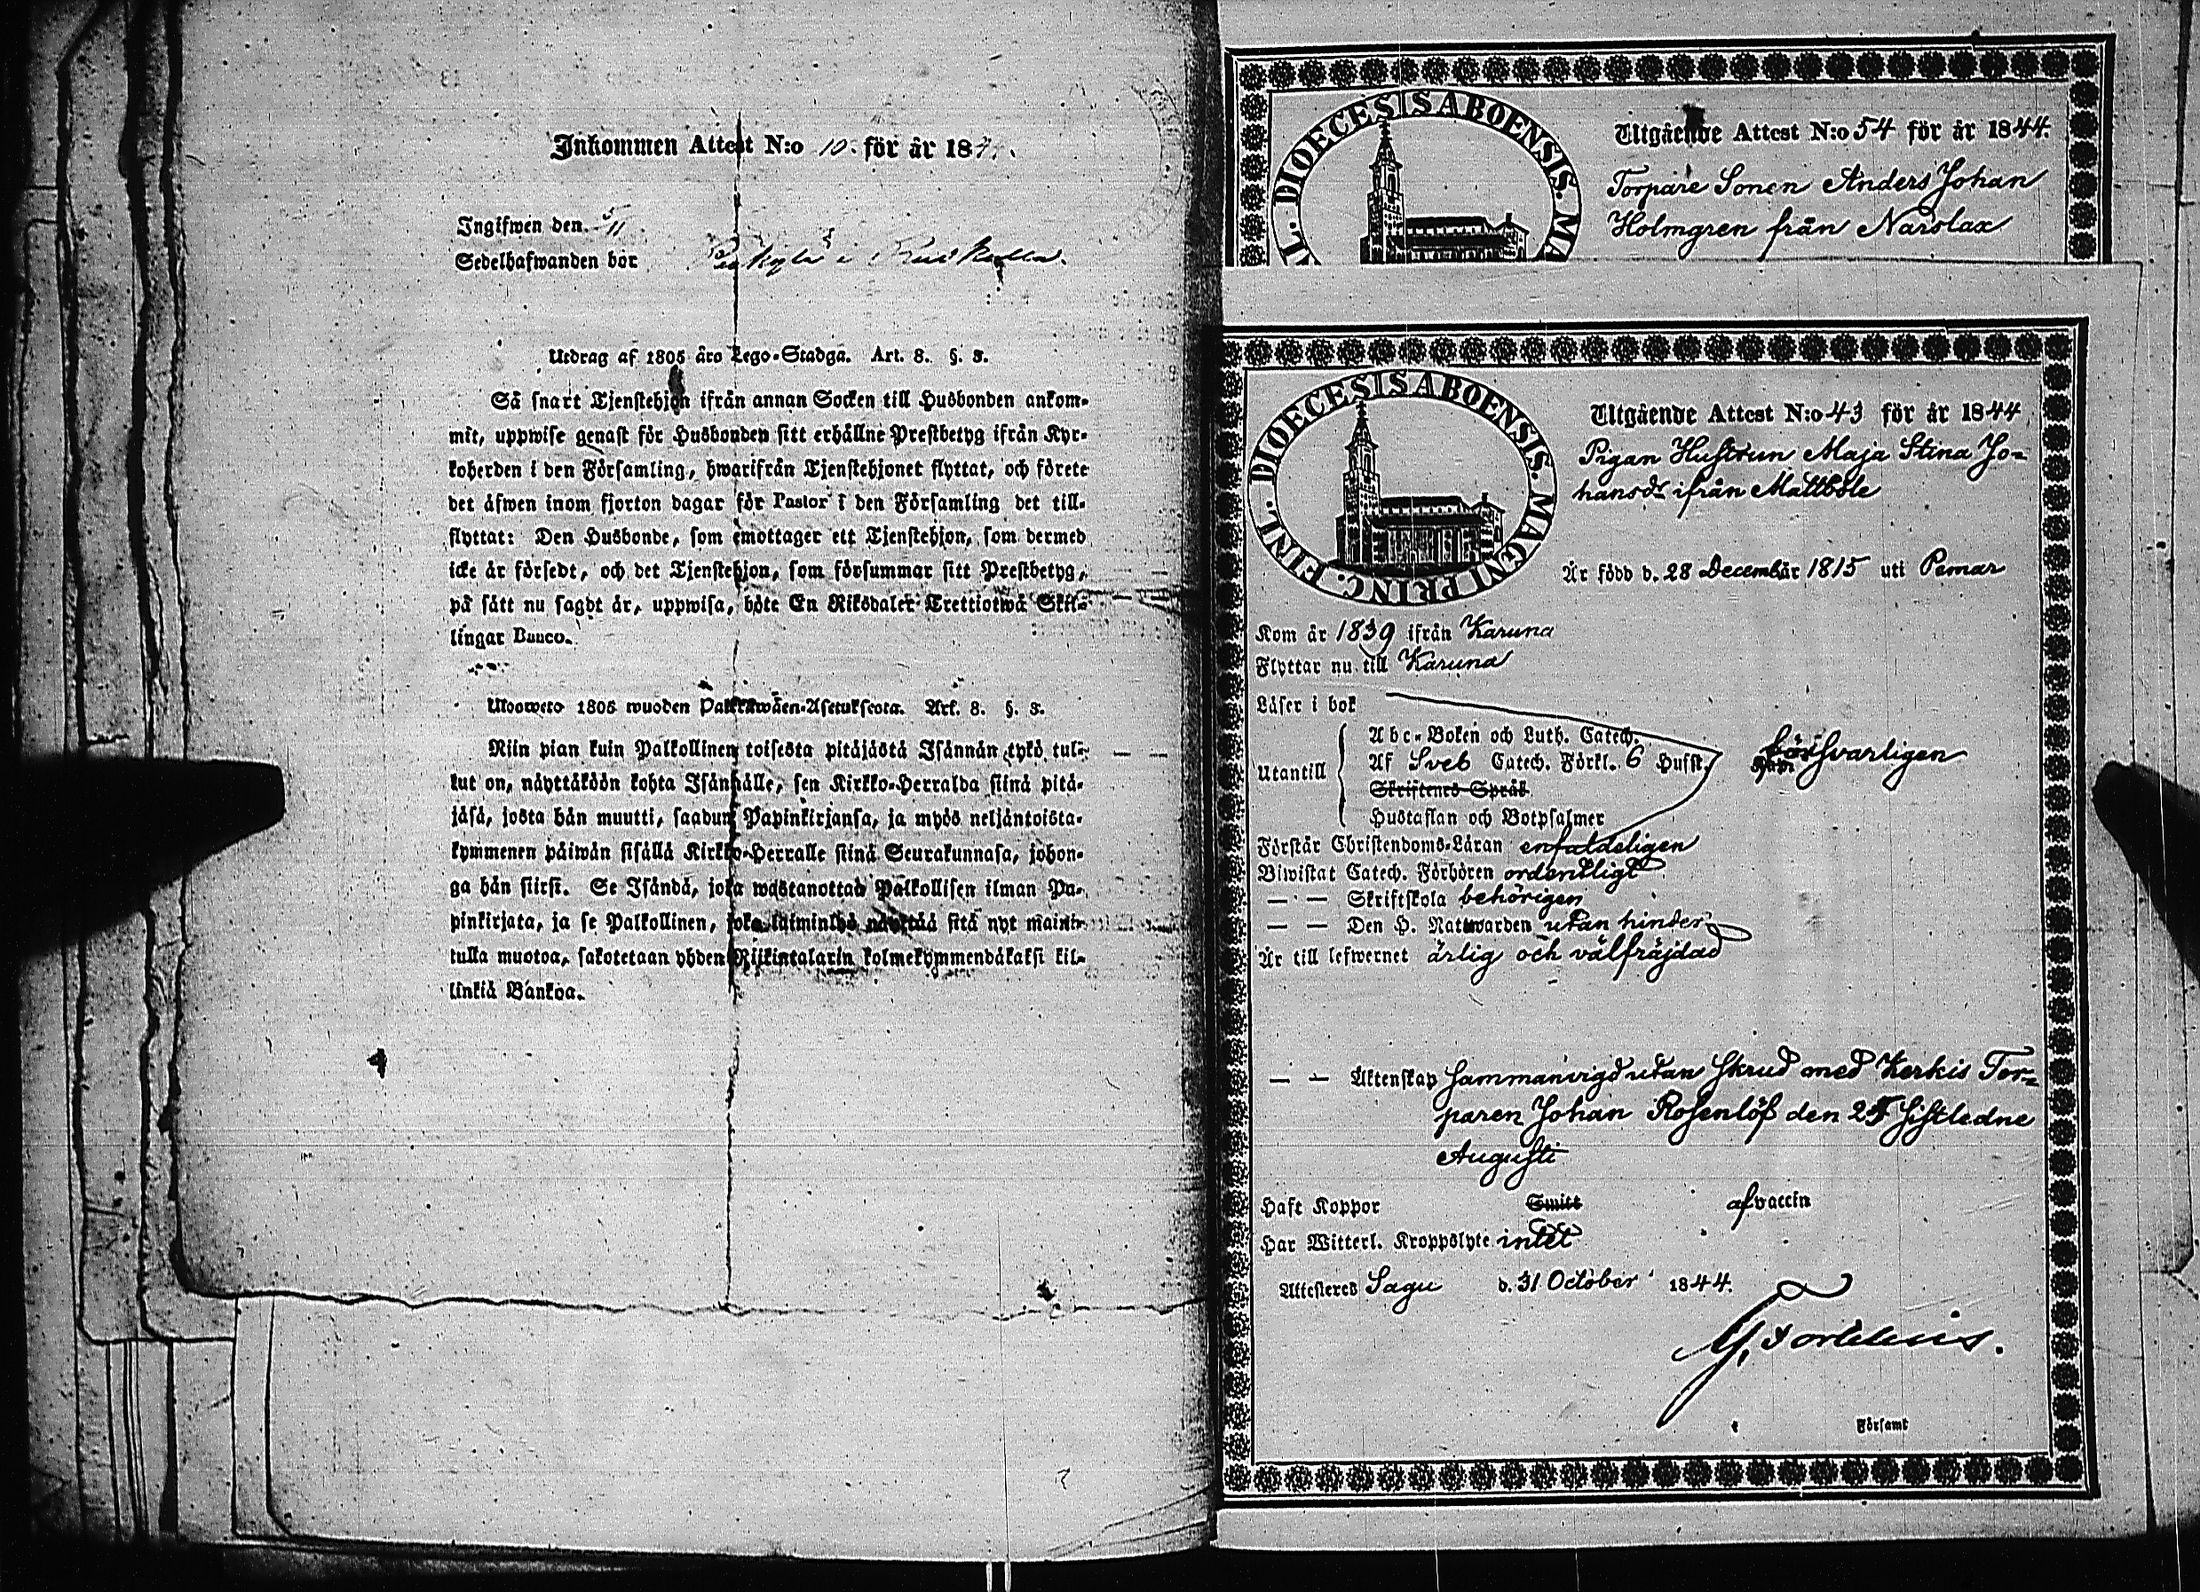 Inkommen Attest N:o 10. för år 184
Ingifwen den 5/11
Sedelhafwanden bor
Utdrag af 1805 års Lego-Stadga. Art. 8. §. 3.
Så snart Tjenstehjon ifrån annan Socken till Husbonden ankom-
mit, uppwise genast för Husbonden sitt erhållne Prestbetyg ifrån Kyr-
koherden i den Församling, hwarifrån Tjenstehjonet flyttat, och förete
det åfwen inom fjorton dagar för Pastor i den Församling det till-
flyttat: Den Husbonde, som emottager ett Tjenstehjon, som dermed
icke är försedt, och det Tjenstehjon, som försummar sitt Prestbetyg,
på sätt nu sagdt är, uppwisa, böte En Riksdaler Trettiotwå Skil-
lingar Banco.
Uloswето 1805 wuoden Palkkawäen-Asetuksesta. Art. 8. §. 3.
Niin pian kuin Palkollinen toisesta pitäjästä Isännän tykö tul-
lut on, näyttäköön kohta Isännälle, sen Kirkko-Herralda siinä pitä-
jäsä, josta hän muutti, saadun Papinkirjansa, ja myös neljäntoista-
kymmenen päiwän sisällä Kirkko-Herralle siinä Seurakunnasa, johon-
ga hän siirsi. Se Isändä, joka wastanottaa Palkollisen ilman Pa-
pinkirjata, ja se Palkollinen, joka laiminlyö näyttää sitä nyt mainit-
tulla muotoa, sakotetaan yhden Riikintalarin kolmekymmendäkaksi kil-
linkiä Bankoa.
FINL. DIOECESIS ABOENSIS. MA
Utgående Attest N:o 54 för år 1844.
Torpare Sonen Anders Johan
Holmgren från Narslax
DIOECESIS ABOENSIS. MAGNI PRINC. FINL.
Utgående Attest N:o 43 för år 1844
Pigan Hustrun Maja Stina Jo-
hansdr ifrån Mattböle
Är född d. 28 December 1815 uti Pemar
Kom år 1839 ifrån Karuna
Flyttar nu till Karuna
Läser i bok
Utantill
Abc-Boken och Luth. Catech.
Af Sveb Catech. Förkl. 6 Hufst.
försvarligen
Skriftenes Språk
Hustaflan och Botpsalmer
Förstår Christendoms-Läran enfaldeligen
Biwistat Catech. Förhören ordentligt
— — Skriftskola behörigen
— — Den H. Nattwarden utan hinder
Är till lefwernet ärlig och välfräjdad
— — Äktenskap Sammanvigd utan skrud med Kerkis Tor-
paren Johan Rosenlöf den 25 sistledne
Augusti
Haft Koppor Smitt af vaccin
Har Witterl. Kroppslyte intet
Attesteres Sagu d. 31 October 1844.
Församl